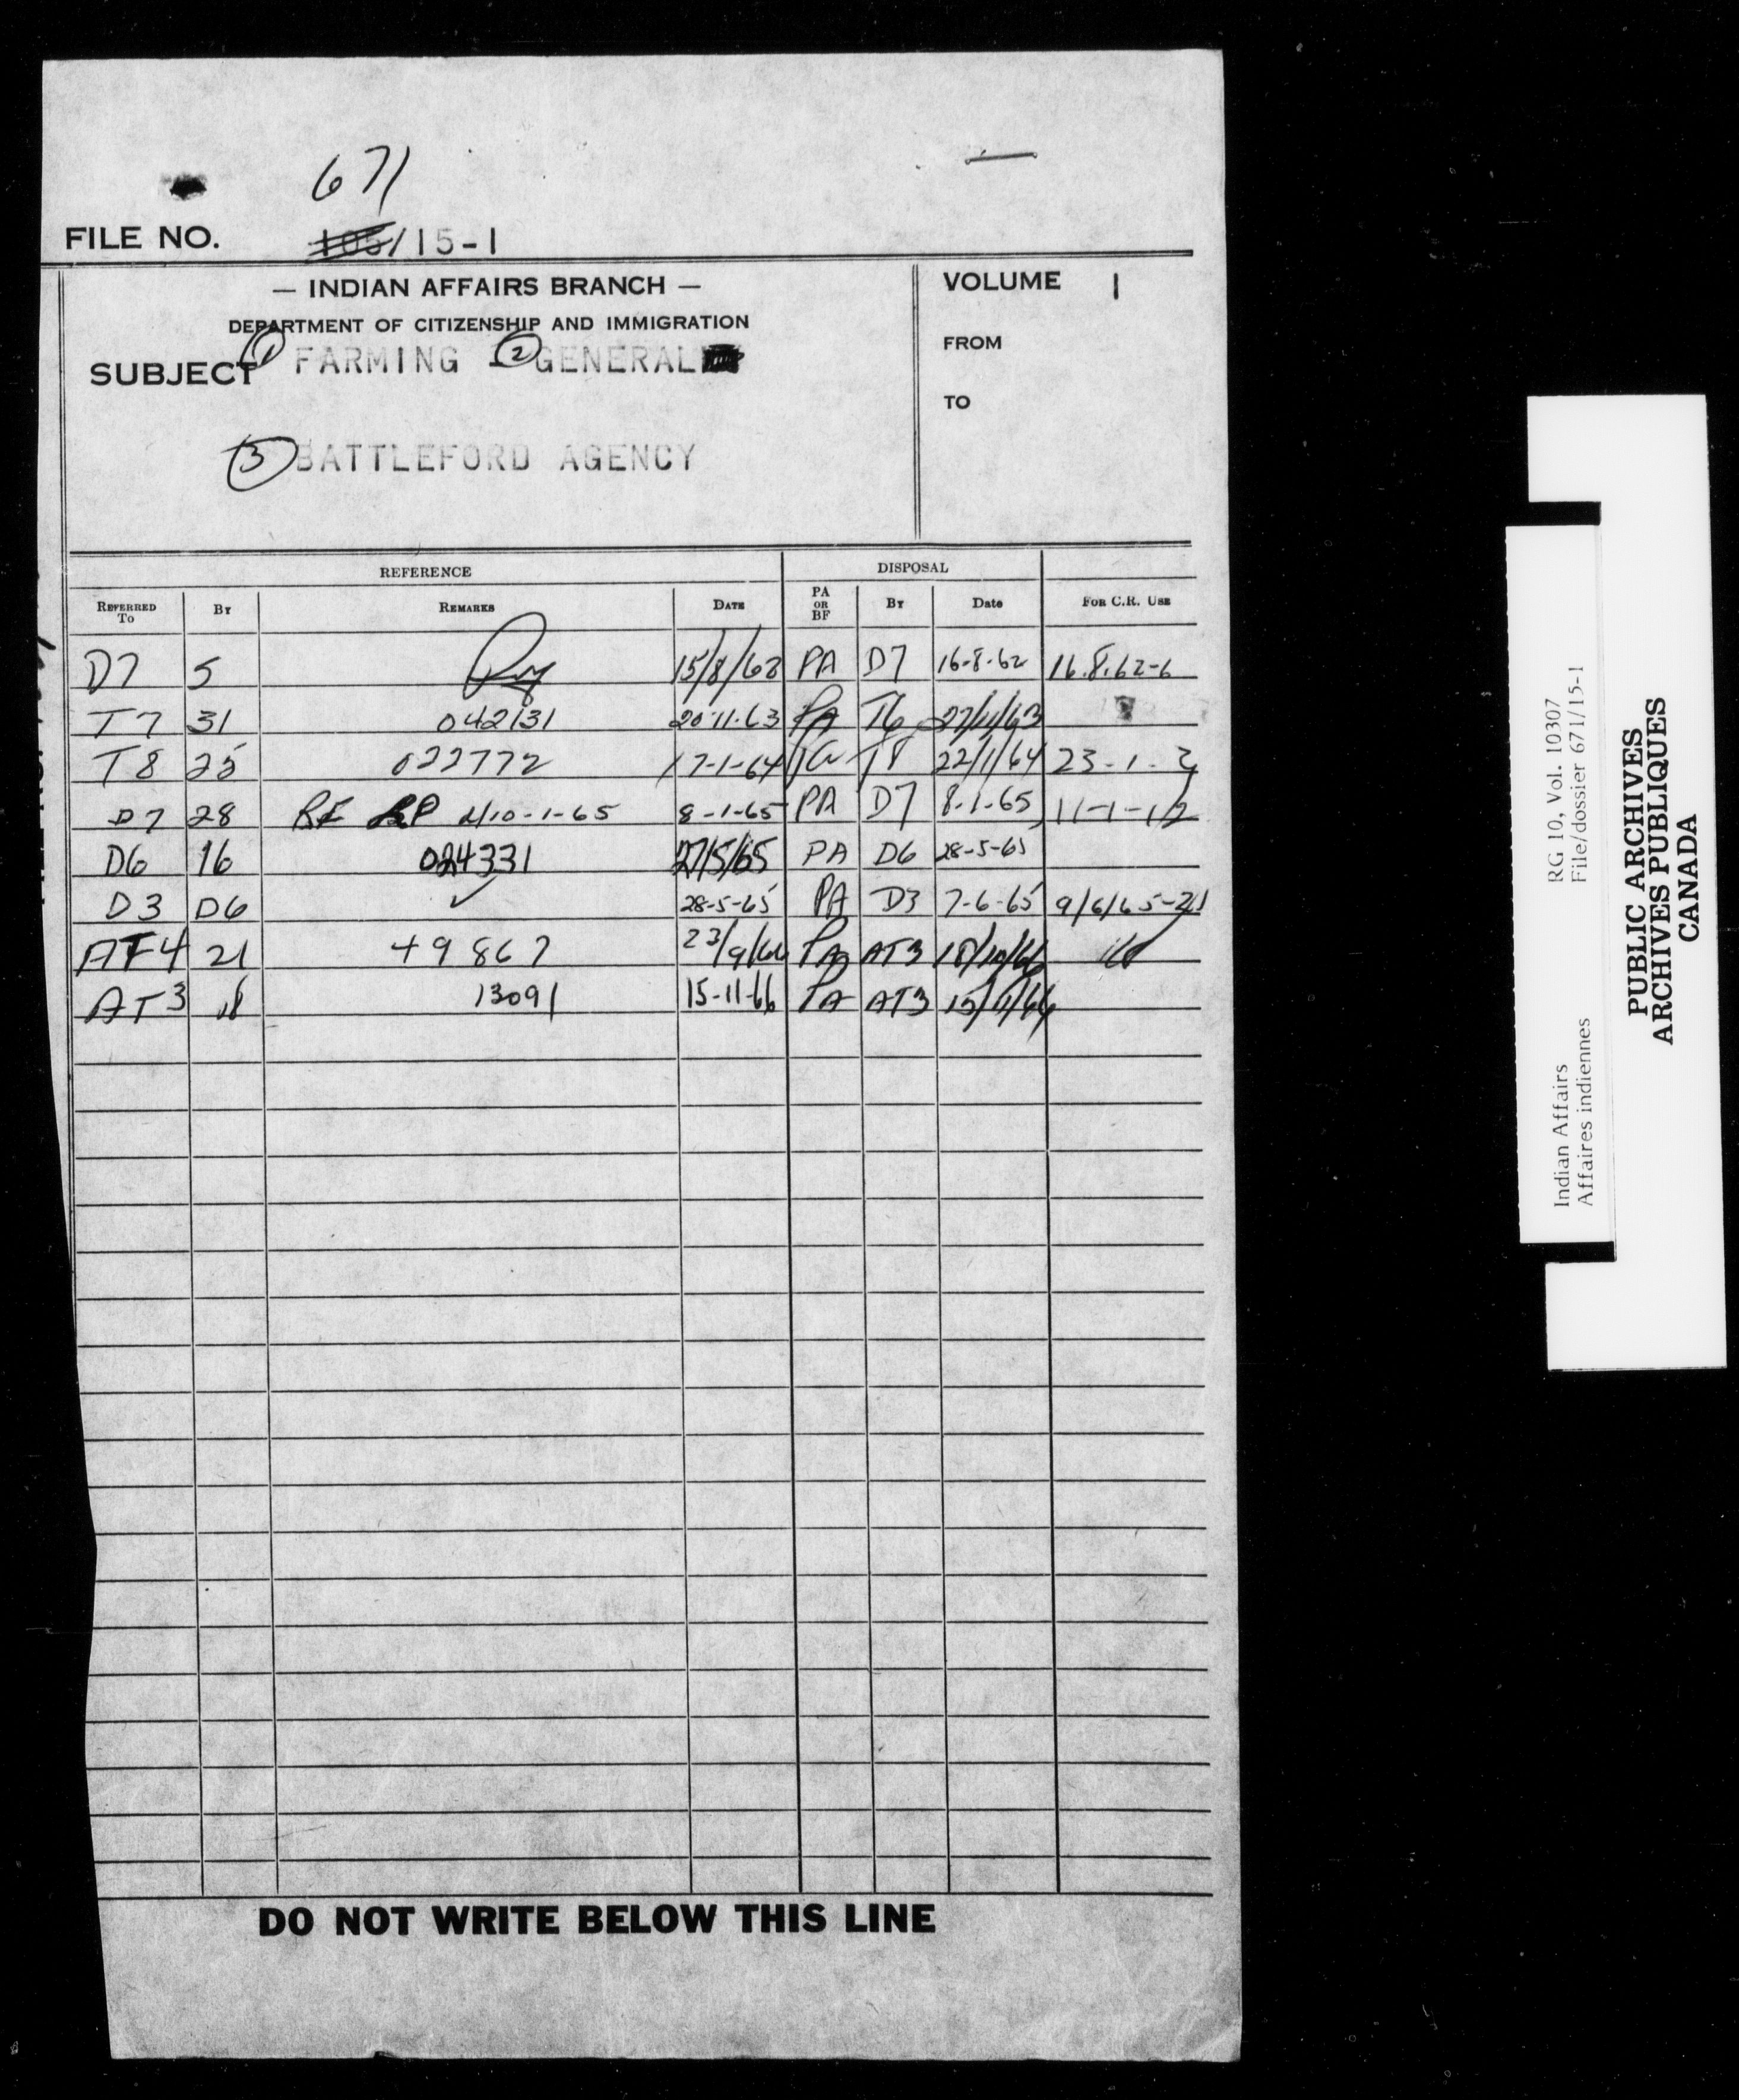 671
FILE NO. 105/15-1
— INDIAN AFFAIRS BRANCH —
DEPARTMENT OF CITIZENSHIP AND IMMIGRATION
SUBJECT ① FARMING - ② GENERAL
③ BATTLEFORD AGENCY
VOLUME 1
FROM
TO
REFERENCE DISPOSAL
REFERRED TO BY REMARKS DATE PA OR BF BY Date FOR C.R. USE
D7 5 15/8/62 PA D7 16-8-62 16.8.62-6
T7 31 042131 20-11-63 PA T6 27/11/63
T8 25 022772 17-1-64 T8 22/1/64 23-1-2
D7 28 10-1-65 8-1-65 PA D7 8-1-65 11-1-12
D6 16 024331 27/5/65 PA D6 28-5-65
D3 D6 ✓ 28-5-65 PA D3 7-6-65 9/6/65-21
AF4 21 49867 23/9/66 PA AT3 18/10/66
AT3 18 13091 15-11-66 PA AT3 15/11/66
DO NOT WRITE BELOW THIS LINE
Indian Affairs RG 10, Vol. 10307
Affaires indiennes File/dossier 671/15-1
PUBLIC ARCHIVES
ARCHIVES PUBLIQUES
CANADA